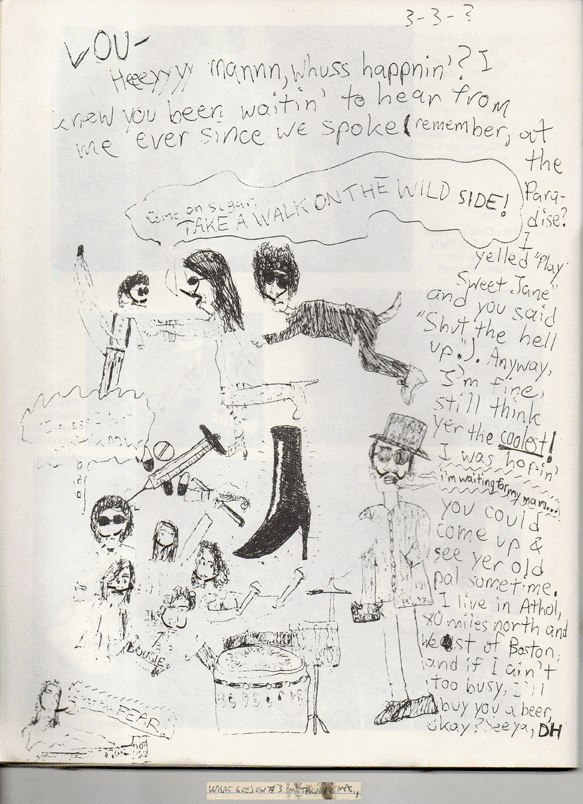 3-3-?
LOU-
Heeyyyy mannn, whuss happnin'? I
know you been waitin' to hear from
me ever since we spoke (remember, at
the
Para-
dise?
I
yelled "Play
Sweet Jane"
and you said
"Shut the hell
up."). Anyway,
I'm fine,
still think
yer the coolest!
I was hopin'
you could
come up &
see yer old
pal sometime.
I live in Athol,
miles north and
west of Boston,
and if I ain't
too busy, I'll
buy you a beer,
okay? Seeya, DH
Come on sugar,
TAKE A WALK ON THE WILD SIDE!
i'm waiting for my man...
FEAR